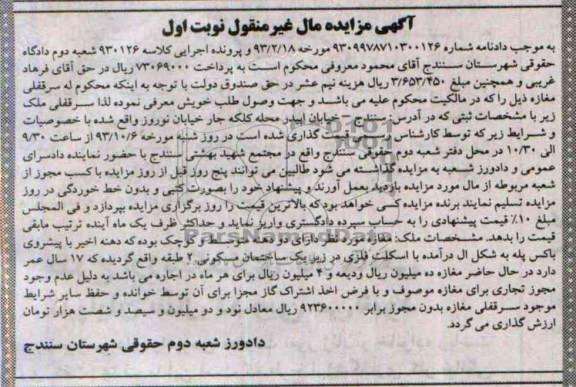 آگهی مزایده مال غیر منقول نوبت اول
به موجب دادنامه شماره ۹۳۰۹۹۷۸۷۱۰۳۰۰۱۲۶ مورخه ۹۳/۲/۱۸ و پرونده اجرایی کلاسه ۹۳۰۱۲۶ شعبه دوم دادگاه
حقوقی شهرستان سنندج آقای محمود معروفی محکوم است به پرداخت ۷۳۰۶۹۰۰۰ ریال در حق آقای فرهاد
غریبی و همچنین مبلغ ۳/۶۵۳/۴۵۰ ریال هزینه نیم عشر در حق صندوق دولت با توجه به اینکه محکوم له سرقفلی
مغازه ذیل را که در مالکیت محکوم علیه می باشد و جهت وصول طلب خویش معرفی نموده لذا سرقفلی ملک
زیر با مشخصات ثبتی که در آدرس: سنندج - خیابان آبیدر محله کلکه جار خیابان نوروز واقع شده با خصوصیات
و شرایط زیر که توسط کارشناس رسمی قیمت گذاری شده است در روز شنبه مورخه ۹۳/۱۰/۶ از ساعت ۹/۳۰
الی ۱۰/۳۰ در محل دفتر شعبه دوم حقوقی سنندج واقع در مجتمع شهید بهشتی سنندج با حضور نماینده دادسرای
عمومی و دادورز شعبه به مزایده گذاشته می شود طالبین می توانند پنج روز قبل از روز مزایده با کسب مجوز از
شعبه مربوطه از مال مورد مزایده بازدید بعمل آورند و پیشنهاد خود را بصورت کتبی و بدون خط خوردگی در روز
مزایده تسلیم نمایند برنده مزایده کسی خواهد بود که بالاترین قیمت را روز برگزاری مزایده بپردازد و فی المجلس
مبلغ ۱۰٪ قیمت پیشنهادی را به حساب سپرده دادگستری واریز نماید و حداکثر ظرف یک ماه آینده ترتیب مابقی
قیمت را بدهد. مشخصات ملک: مغازه مورد نظر دارای دو دهنه متوسط و کوچک بوده که دهنه اخیر با پیشروی
باکس پله به شکل ال درآمده با اسکلت فلزی در زیر یک ساختمان مسکونی ۲ طبقه واقع گردیده که ۱۷ سال عمر
دارد در حال حاضر مغازه ده میلیون ریال ودیعه و ۴ میلیون ریال برای هر ماه در اجاره می باشد به دلیل عدم وجود
مجوز تجاری برای مغازه موصوف و با فرض اخذ اشتراک گاز مجزا برای آن توسط خوانده و حفظ سایر شرایط
موجود سرقفلی مغازه بدون مجوز برابر ۹۲۳۶۰۰۰۰۰ ریال معادل نود و دو میلیون و سیصد و شصت هزار تومان
ارزش گذاری می گردد.
دادورز شعبه دوم حقوقی شهرستان سنندج